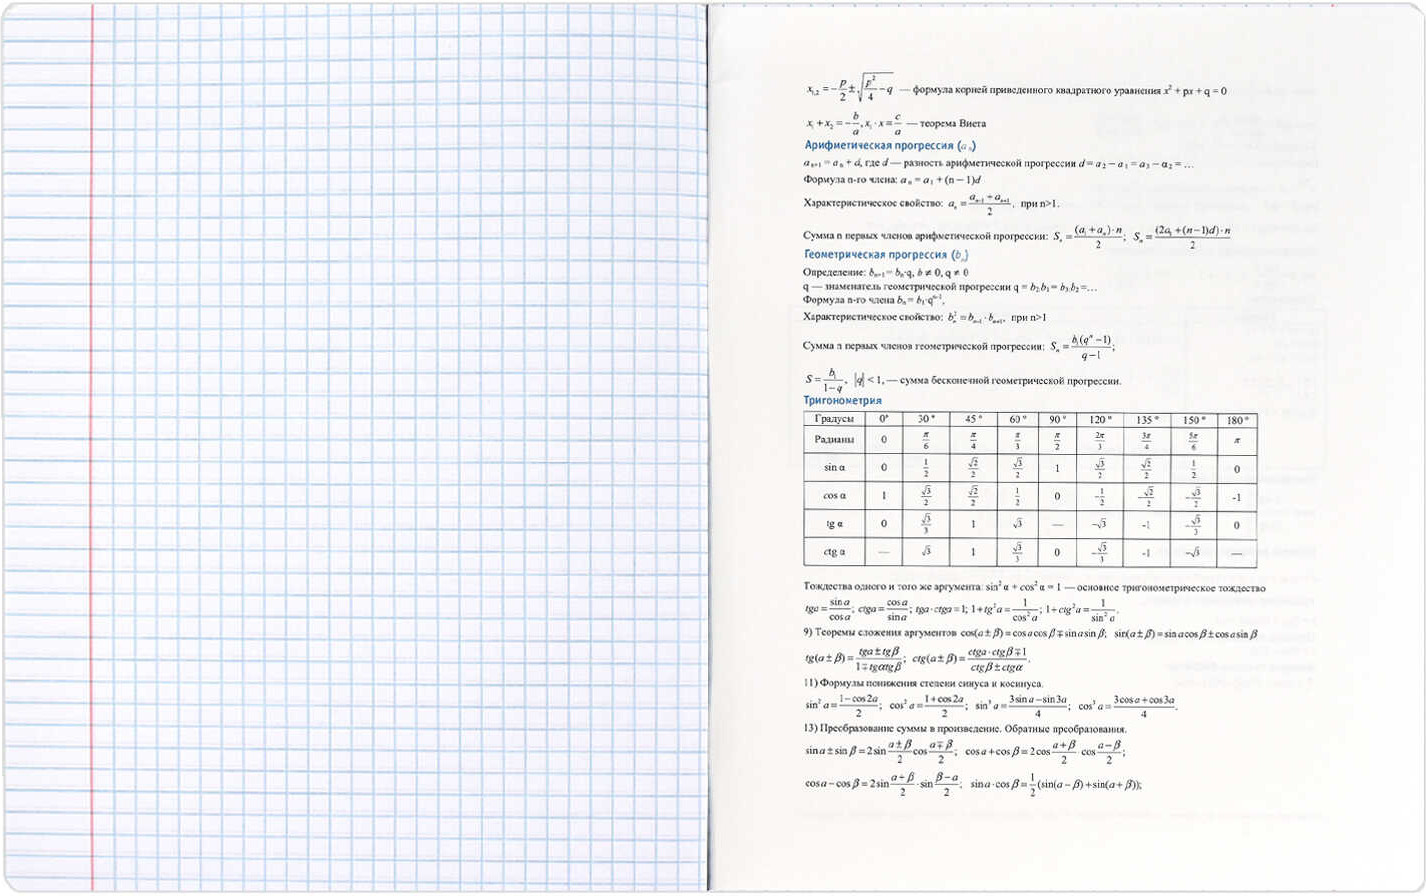 x₁,₂ = −p/2 ± √(p²/4 − q) — формула корней приведенного квадратного уравнения x² + px + q = 0
x₁ + x₂ = −b/a, x₁ · x = c/a — теорема Виета
Арифметическая прогрессия (aₙ)
aₙ₊₁ = aₙ + d, где d — разность арифметической прогрессии d = a₂ − a₁ = a₃ − a₂ = …
Формула n-го члена: aₙ = a₁ + (n − 1)d
Характеристическое свойство: aₙ = (aₙ₋₁ + aₙ₊₁)/2, при n>1.
Сумма n первых членов арифметической прогрессии: Sₙ = (a₁ + aₙ)·n/2; Sₙ = (2a₁ + (n−1)d)·n/2
Геометрическая прогрессия (bₙ)
Определение: bₙ₊₁ = bₙ·q, b ≠ 0, q ≠ 0
q — знаменатель геометрической прогрессии q = b₂:b₁ = b₃:b₂ =…
Формула n-го члена bₙ = b₁·qⁿ⁻¹,
Характеристическое свойство: bₙ² = bₙ₋₁ · bₙ₊₁, при n>1
Сумма n первых членов геометрической прогрессии: Sₙ = b₁(qⁿ −1)/(q−1);
S = b₁/(1−q), |q| < 1, — сумма бесконечной геометрической прогрессии.
Тригонометрия
Градусы 0° 30° 45° 60° 90° 120° 135° 150° 180°
Радианы 0 π/6 π/4 π/3 π/2 2π/3 3π/4 5π/6 π
sin α 0 1/2 √2/2 √3/2 1 √3/2 √2/2 1/2 0
cos α 1 √3/2 √2/2 1/2 0 −1/2 −√2/2 −√3/2 -1
tg α 0 √3/3 1 √3 — −√3 -1 −√3/3 0
ctg α — √3 1 √3/3 0 −√3/3 -1 −√3 —
Тождества одного и того же аргумента: sin² α + cos² α = 1 — основное тригонометрическое тождество
tga = sin a/cos a; ctga = cos a/sin a; tga·ctga = 1; 1+tg²a = 1/cos² a; 1+ctg²a = 1/sin² a.
9) Теоремы сложения аргументов cos(a ± β) = cos a cos β ∓ sin a sin β; sin(a ± β) = sin a cos β ± cos a sin β
tg(a ± β) = (tga ± tgβ)/(1 ∓ tgαtgβ); ctg(a ± β) = (ctga·ctgβ ∓ 1)/(ctgβ ± ctgα).
11) Формулы понижения степени синуса и косинуса.
sin² a = (1−cos2a)/2; cos² a = (1+cos2a)/2; sin³ a = (3sin a − sin3a)/4; cos³ a = (3cos a + cos3a)/4.
13) Преобразование суммы в произведение. Обратные преобразования.
sin a ± sin β = 2sin (a ± β)/2 cos (a ∓ β)/2; cos a + cos β = 2cos (a+β)/2 cos (a−β)/2;
cos a − cos β = 2sin (a+β)/2 · sin (β−a)/2; sin a · cos β = 1/2 (sin(a−β) + sin(a+β));